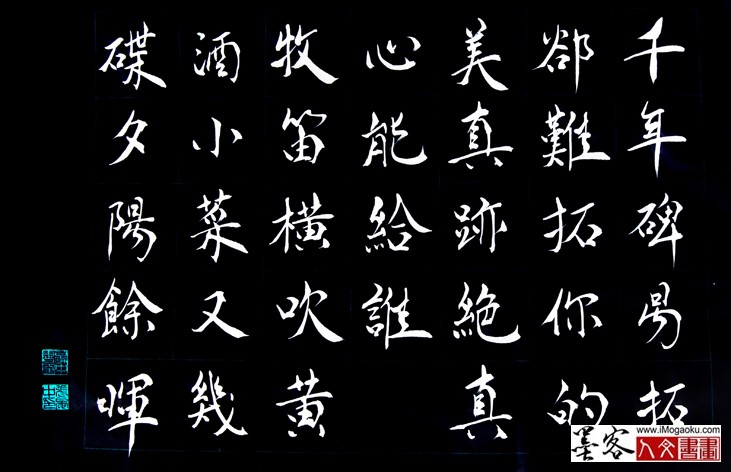 千年碑易拓
卻難拓你的
美真跡絕真
心能給誰
牧笛橫吹黃
酒小菜又幾
碟夕陽餘暉
www.iMogaoku.com
墨客人文書畫